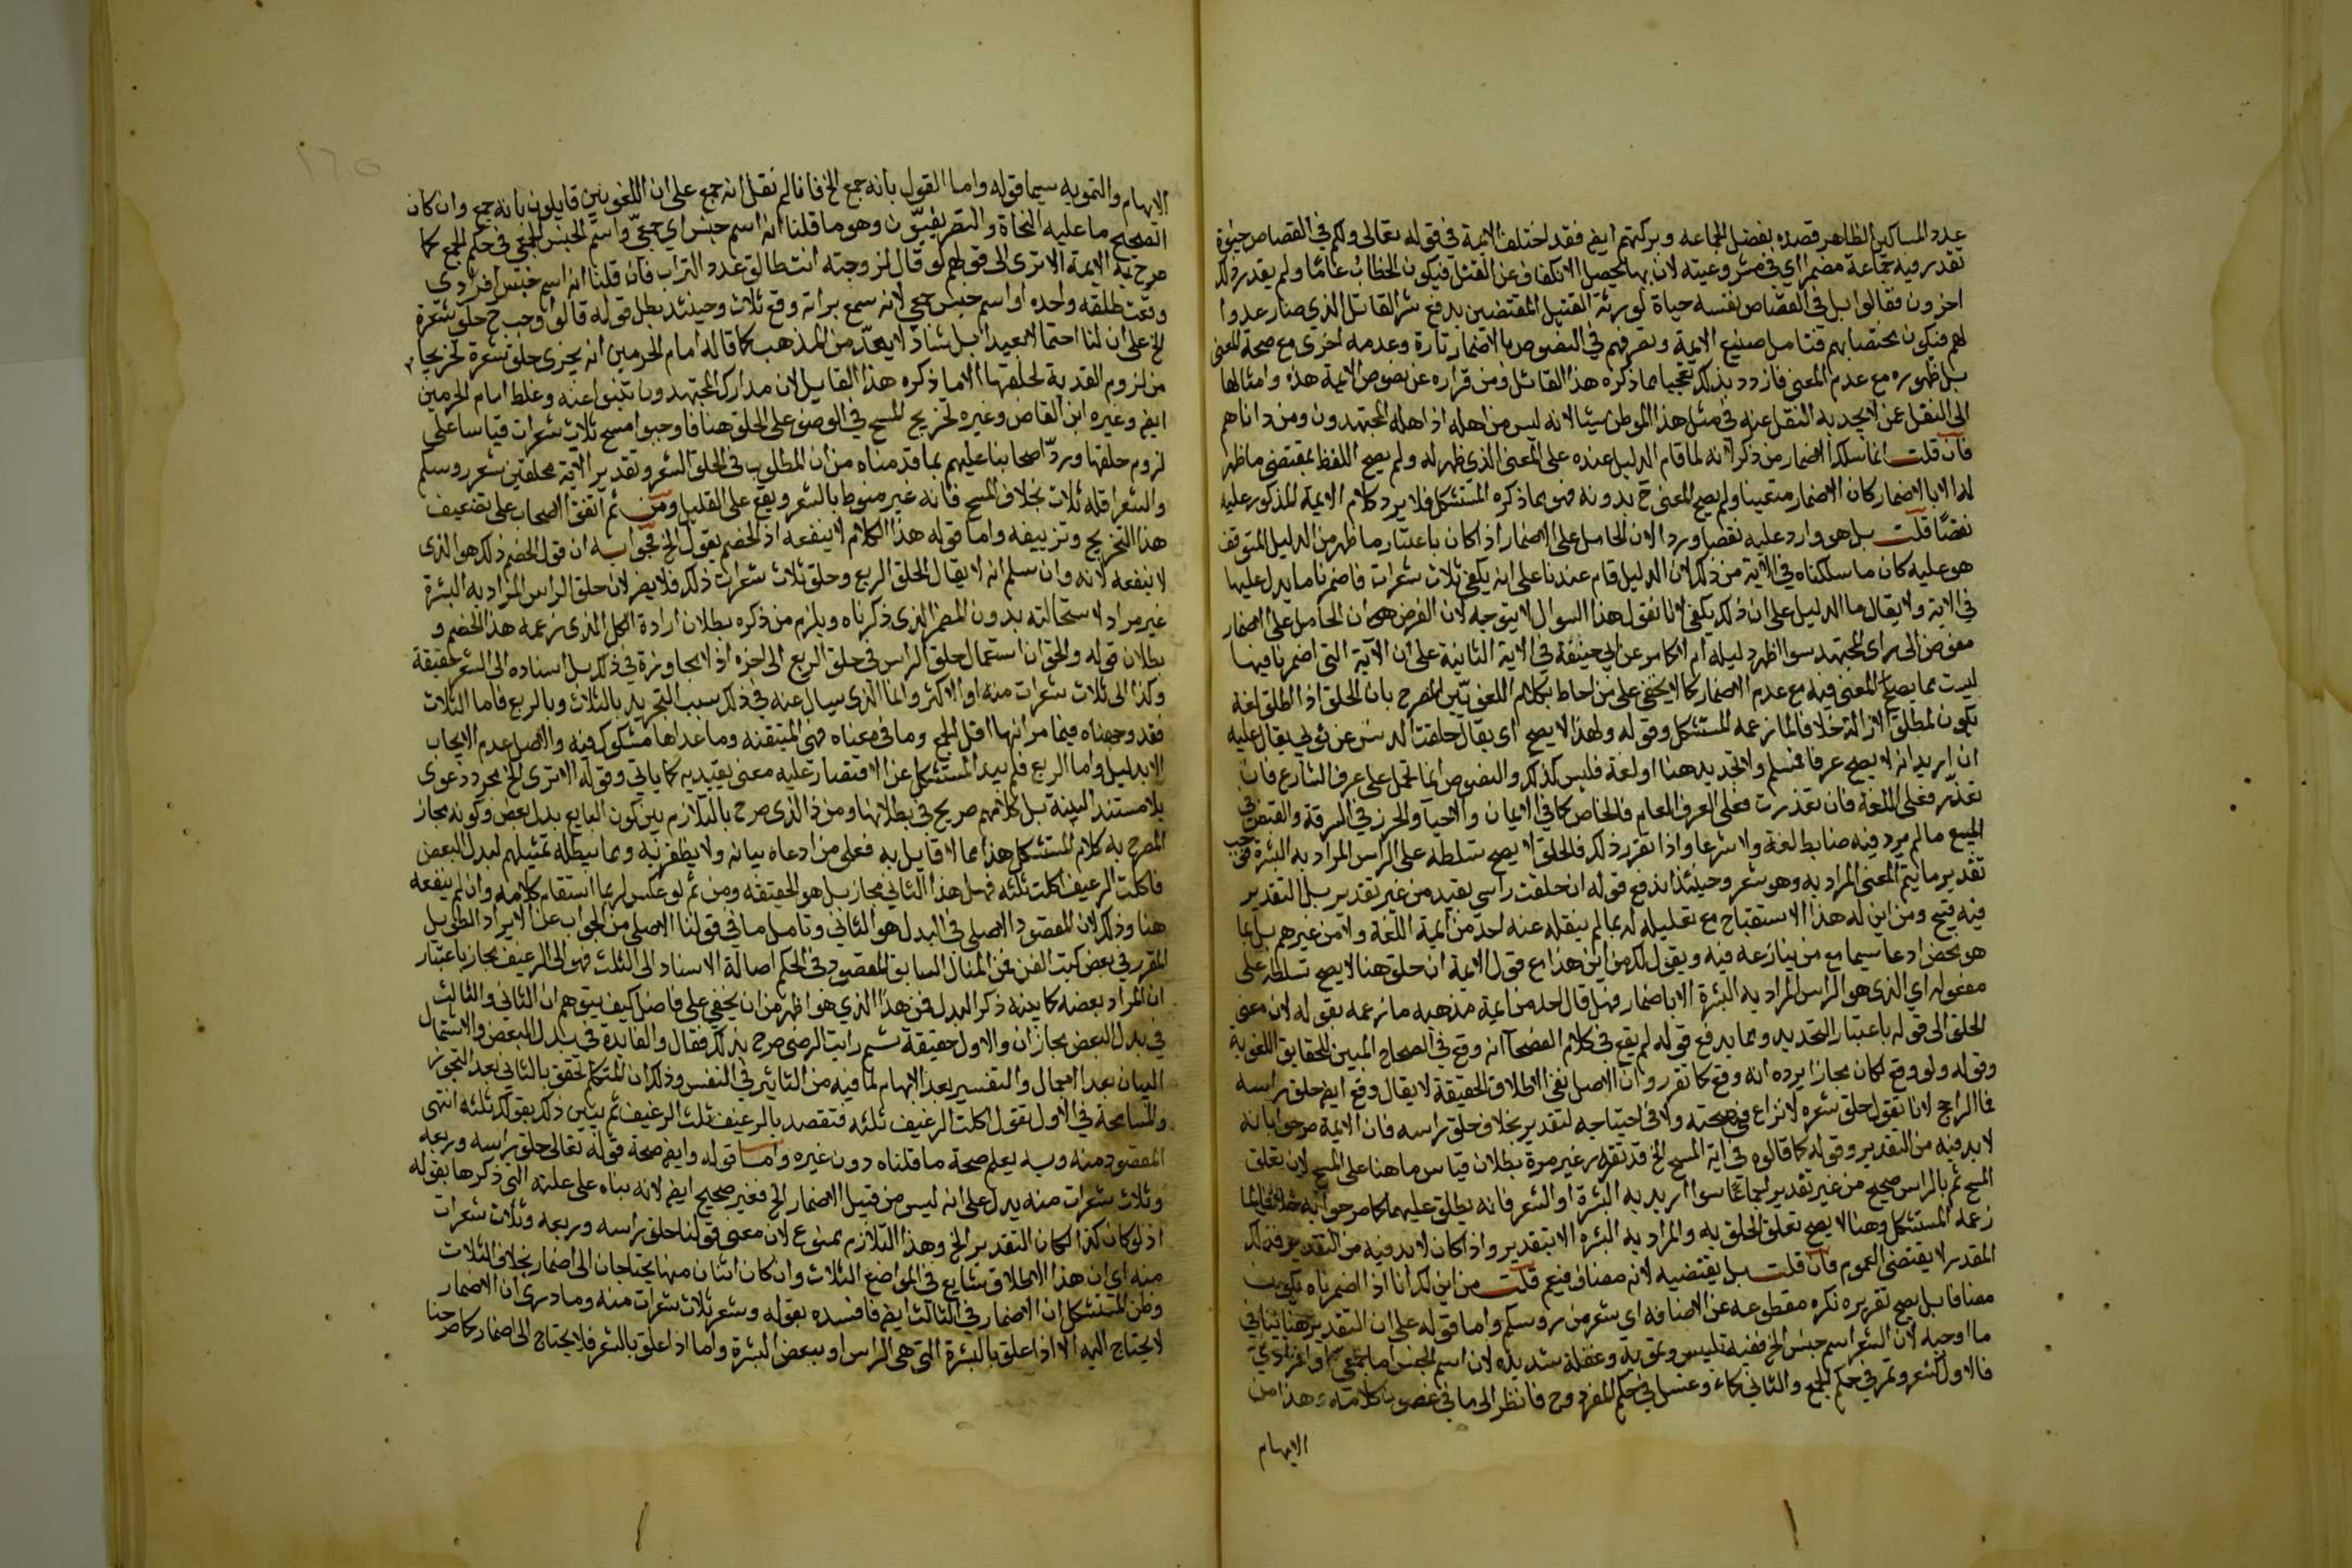 عدد المساكين الظاهر قصده بفضل الجماعه وبركتهم ايض فقد اختلف الايمة في قوله تعالى ولكم في القصاص حيوة
تقدر فيه جماعة مضمرا اي في مشروعيته لان بها يحصل الانكفاف عن القتل فيكون الخطاب عاما ولم يقدر ذلك
اخرون فقالوا بل في القصاص نفسه حياة لورثة القتيل المقتضين بدفع شر القاتل الذي صار عدوا
لهم فيكون مختصا بهم فتامل صنيع الايمة وتصرفهم في النصوص بالاضمار تارة وعدمه اخرى مع صحة المعنى
بل ظهوره مع عدم المعنى فازدد بذلك تعجبا مما ذكره هذا القائل ومن قراره عن نصوص الايمة هذه وامثالها
الى النقل عن لا يجد به النقل عنه في مثل هذا الموطن شيئا لانه ليس من اهله اذ اهله المجتهدون ومن داناهم
فان قلت انما سلك الاضمار من ذكر لانه لما قام الدليل عنده على المعنى الذي ظهر له ولم يصح اللفظ بمقتضى ما ظهر
له الا بالاضمار كان الاضمار متعينا ولم يصح المعنى ح بدونه فهو مما ذكره المستشكل فلا يرد كلام الايمة المذكور عليه
نقضا قلت بل هو وارد عليه نقضا وردا لان الحامل على الاضمار اذا كان باعتبار ما ظهر من الدليل المتوقف
هو عليه كان ما سلكناه في الاية من ذلك لان الدليل قام عندنا على انه يكفي ثلاث شعرات فاضمرنا ما يدل عليها
في الاية ولا يقال ما الدليل على ان ذلك يكفي لانا نقول هذا السوال لا يتوجه لان الفرض هو ان الحامل على الاضمار
مفوض الى راى المجتهد سوا اظهر دليله ام لا كما مر عن ابي حنيفة في الاية الثانية على ان الآية التي اضمرنا فيها
ليست مما يصح المعنى فيه مع عدم الاضمار كما لا يخفى على من احاط بكلام اللغويين المصرح بان الحلق اذا اطلق لغة
يكون لمطلق الازالة خلافا لما زعمه المستشكل وقوله ولهذا لا يصح اي يقال حلقت الدنس عن ثوبي يقال عليه
ان اريد انه لا يصح عرفا فمسلم ولا تحديد هنا او لغة فليس كذلك والنصوص انما تحمل على عرف الشارع فان
تعذر فعلى اللغة فان تعذرت فعلى العرف العام فالخاص كما في الايمان والاحيا والحرز في السرقة والقبض في
البيع مما لم يرد فيه ضابط لغة ولا شرعا واذا تقرر ذلك فالحلق لا يصح تسلطه على الراس المراد به البشرة فيجب
تقدير ما يتم المعنى المراد به وهو شعر وحينئذ اندفع قوله ان حلقت راسي يفيد من غير تقدير بل التقدير
فيه قبيح ومن اين له هذا الاستقباح مع تعليله له بما لم ينقله عنه احد من ايمة اللغة ولا من غيرهم بل انما
هو محض ادعا سيما مع من ينازعه فيه ويقول لك من اين هذا مع قول الايمة ان حلق هنا لا يصح تسلطه على
مفعوله اي الذي هو الراس المراد به البشرة الا باضمار فهل قال احد من ايمة مذهبه ما زعمه بقوله لان معنى
الحلق الى قوله باعتبار التحديد ومما يدفع قوله لم يقع في كلام الفصحا انه وقع في الصحاح المبين للحقايق اللغوية
وقوله ولو وقع لكان مجازا يرده انه وقع كما تقرر وان الاصل نفي الاطلاق الحقيقة لا يقال وقع ايض حلق راسه
فما الراجح لانا نقول حلق شعره لا نزاع في صحته ولا في احتياجه لتقدير بخلاف حلق راسه فان الايمة صرحوا بانه
لا بد فيه من التقدير وقوله كما قالوه في اية المسح الخ قد تقرر غير مرة بطلان قياس ما هنا على المسح لان تعلق
المسح ثم بالراس صحيح من غير تقدير اجماعا سوا اريد به البشرة او الشعر فانه يطلق عليهما كما صرحوا به خلافا لما
زعمه المستشكل وهنا لا يصح تعلق الحلق به والمراد به البشرة الا بتقدير واذا كان لا بد فيه من التقدير فذلك
المقدر لا يقتضي العموم فان قلت بل يقتضيه لانه مضاف فيعم قلت من اين لك انا اذا اضمرناه يكون
مضافا بل يصح تقريره نكره مقطوعه عن الاضافه اي شعر من روسكم واما قوله على ان التقدير هنا ينافي
ما اوجبه لان الشعر اسم جنس الخ ففيه تلبيس وتمويه وغفلة شديده لان اسم الجنس اما جمعي او افرادي
فالاول كشعر وتمر في حكم الجمع والثاني كماء وعسل في حكم المفرد وح فانظر الى ما في غصون كلامه وهذا من
الايهام
الايهام والتمويه سيما قوله واما القول بانه جمع الخ فانا لم نقل انه جمع على ان اللغويين قايلون بانه جمع وان كان
الصحيح ما عليه النحاة والتصريفيون وهو ما قلنا انه اسم جنس اي جمعي واسم الجنس الجمعي في حكم الجمع كما
صرح به الايمة الا ترى الى قولهم لو قال لزوجته انت طالق عدد التراب فان قلنا انه اسم جنس افرادي
وقعت طلقه واحده او اسم جنس جمعي لانه سمع برابه وقع ثلاث وحينئذ بطل قوله قالوا وجب ح حلق شعرة
الخ على ان لنا احتمالا بعيدا بل شاذا لا يعد من المذهب كما قاله امام الحرمين انه يجزى حلق شعرة تخريجا
من لزوم الفدية لحلقها الا ما ذكره هذا القايل لان مدارك المجتهدون تنبوا عنه وغلط امام الحرمين
ايض وغيره ابن القاص وغيره لتخريج المسح في الوضو على الحلق هنا فاوجبوا مسح ثلاث شعرات قياسا على
لزوم حلقها ورد اصحابنا عليهم بما قدمناه من ان المطلوب في الحلق الشعر وتقدير الاية محلقين شعر روسكم
والشعر اقله ثلاث بخلاف المسح فانه غير منوط بالشعر ويقع على القليل ومن ثم اتفق الاصحاب على تضعيف
هذا التخريج وتزييفه واما قوله هذا الكلام لا ينفعه اذ الخصم يقول الخ فجوابه ان قول الخصم ذلك هو الذى
لا ينفعه لانه وان سلم انه لا يقال الحلق الربع وحلق ثلاث شعرات ذلك فلا يضر لان حلق الراس المراد به البشرة
غير مراد لاستحالته بدون المضمر الذى ذكرناه ويلزم من ذكره بطلان ارادة الكل الذى زعمه هذا الخصم و
بطلان قوله والحق ان استعمال حلق الراس في حلق الربع الى اخره اذ لا مجاوزة في ذلك بل اسناده الى الشعر حقيقة
وكذا الى ثلاث شعرات منه او الاكثر وانما الذى يسال عنه في ذلك سبب التحديد بالثلاث وبالربع فاما الثلاث
فقد وجهناه فيما مر انها اقل الجمع وما في معناه فهي المتيقنة وما عداها مشكوك فيه والاصل عدم الايجاب
الا بدليل واما الربع فلم يبد المستشكل عن الاقتصار عليه معنى يعتد به كما ياتي وقوله الا ترى الخ مجرد دعوى
بلا مستند البتة بل كلامهم صريح في بطلانها ومن ذا الذى صرح بالتلازم بين كون البايع بدل بعض وكونه مجاز
المصرح به كلام المستشكل هذا مما لا قايل به فعلى من ادعاه بيانه ولا يظفر به ومما يبطله تمثيلهم لبدل البعض
فاكلت الرغيف اكلت ثلثه فهل هذا الثاني مجاز بل هو الحقيقة ومن ثم لو عكس لربما استقام كلامه وان لم ينفعه
هنا وذلك لان المقصود الاصلى في البدل هو الثاني وتامل ما في قولنا الاصلى من الجواب عن الايراد الطويل
المقرر في بعض كتب الفن فمن المثال السابق المقصود في الحكم اصالة الاسناد الى الثلث فهو الى الرغيف مجاز باعتبار
ان المراد بعضه كما بينه ذكر البدل فمن هذا الذي هو اظهر من ان يخفى على فاضل كيف يتوهم ان الثاني والثالث
في بدل البعض مجازان والاول حقيقة ثم رايت الرضى صرح بذلك فقال والفائدة في بدل البعض والاشتمال
البيان بعد الاجمال والتفسير بعد الابهام لما فيه من التاثير في النفس وذلك ان المتكلم تحقق بالثاني بعد التجوز
والمسامحة في الاول تقول اكلت الرغيف ثلثه فتقصد بالرغيف ثلث الرغيف ثم تبين ذلك بقولك ثلثه انتهى
المقصود منه وبه يعلم صحة ما قلناه دون غيره واما قوله وايض صحة قوله تعالى حلق راسه وربعه
وثلاث شعرات منه يدل على انه ليس من قبيل الاضمار الخ فغير صحيح ايض لانه بناه على علته التي ذكرها بقوله
اذ لو كان كذا لكان التقدير الخ وهذا التلازم ممنوع لان معنى قولنا حلق راسه وربعه وثلاث شعرات
منه اي ان هذا الاطلاق شايع في المواضع الثلاث وان كان اثنان منها يحتاجان الى اضمار بخلاف الثلاث
وظن المستشكل ان الاضمار في الثالث ايض فافسده بقوله وشعر ثلاث شعرات منه وما درى ان الاضمار
لا يحتاج اليه الا اذا علق بالبشرة التي هي الراس او ببعض البشرة واما اذا علق بالشعر فلا يحتاج الى اضمار كما صرحنا